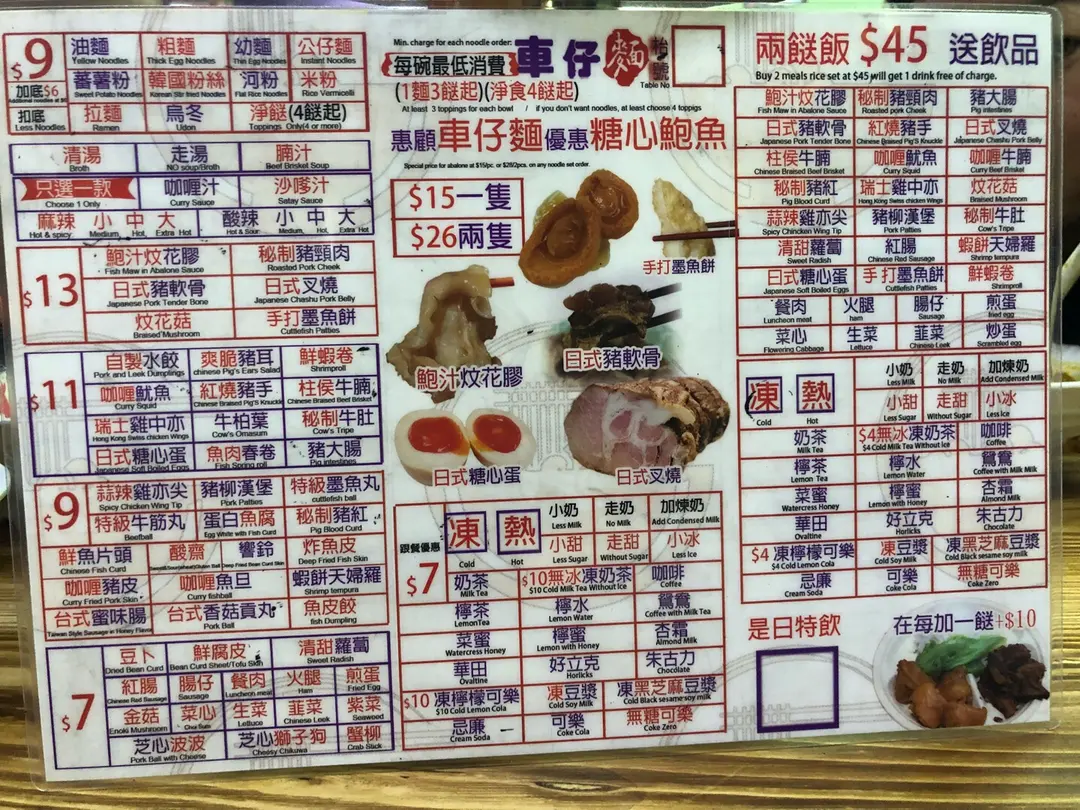 $9 油麵 粗麵 幼麵 公仔麵
Yellow Noodles Thick Egg Noodles Thin Egg Noodles Instant Noodles
加底$6 蕃薯粉 韓國粉絲 河粉 米粉
Sweet Potato Noodles Korean Stir fried Noodles Flat Rice Noodles Rice Vermicelli
扣底 拉麵 烏冬 淨餸(4餸起)
Less Noodles Ramen Udon Toppings Only(4 or more)
清湯 走湯 腩汁
Clear Soup NO soup/Broth Beef Brisket Soup
只選一款 咖喱汁 沙嗲汁
Choose 1 Only Curry Sauce Satay Sauce
麻辣 小 中 大 酸辣 小 中 大
Hot & spicy Medium, Hot, Extra Hot Hot & Sour Medium, Hot, Extra Hot
$13 鮑汁炆花膠 秘制豬頸肉
Fish Maw in Abalone Sauce Roasted Pork Cheek
日式豬軟骨 日式叉燒
Japanese Pork Tender Bone Japanese Chashu Pork Belly
炆花菇 手打墨魚餅
Braised Mushroom Cuttlefish Patties
$11 自製水餃 爽脆豬耳 鮮蝦卷
Pork and Leek Dumplings Chinese Pig's Ears Salad Shrimproll
咖喱魷魚 紅燒豬手 柱侯牛腩
Curry Squid Chinese Braised PIG'S Knuckle Chinese Braised Beef Brisket
瑞士雞中亦 牛柏葉 秘制牛肚
Hong Kong Swiss chicken Wings Cow's Omasum Cow's Tripe
日式糖心蛋 魚肉春卷 豬大腸
Japanese Soft Boiled Eggs Fish Spring roll Pig intestines
$9 蒜辣雞亦尖 豬柳漢堡 特級墨魚丸
Spicy Chicken Wing Tip Pork Patties cuttlefish ball
特級牛筋丸 蛋白魚腐 秘制豬紅
Beefball Egg White with Fish Curd Pig Blood Curd
鮮魚片頭 酸齋 響鈴 炸魚皮
Chinese Fish Curd Deep Fried Bean Curd Skin Deep Fried Fish Skin
咖喱豬皮 咖喱魚旦 蝦餅天婦羅
Curry Fried Pork Skin Curry fishball Shrimp tempura
台式蜜味腸 台式香菇貢丸 魚皮餃
Taiwan Style Sausage in Honey Flavor Pork Ball fish Dumpling
$7 豆卜 鮮腐皮 清甜蘿蔔
Dried Bean Curd Bean Curd Sheet/Tofu Skin Sweet Radish
紅腸 腸仔 餐肉 火腿 煎蛋
Chinese Red Sausage Sausage Luncheon meat Ham Fried Egg
金菇 菜心 生菜 韮菜 紫菜
Enoki Mushroom Choi Sum Lettuce Chinese Leek Seaweed
芝心波波 芝心獅子狗 蟹柳
Pork Ball with Cheese Cheesy Chikuwa Crab Stick
Min. charge for each noodle order:
每碗最低消費 車仔麵 枱號
Table No
(1麵3餸起)(淨食4餸起)
At least 3 toppings for each bowl / if you don't want noodles, at least choose 4 toppigs
惠顧車仔麵優惠糖心鮑魚
Special price for abalone at $15/pc. or $26/2pcs. on any noodle set order
$15一隻
$26兩隻
手打墨魚餅
日式豬軟骨
鮑汁炆花膠
日式糖心蛋
日式叉燒
跟餐優惠 凍 熱 小奶 走奶 加煉奶
Less Milk No Milk Add Condensed Milk
小甜 走甜 小冰
Cold Hot Less Sugar Without Sugar Less Ice
$7 奶茶 $10無冰凍奶茶 咖啡
Milk Tea $10 Cold Milk Tea Without Ice Coffee
檸茶 檸水 鴛鴦
LemonTea Lemon Water Coffee with Milk Tea
菜蜜 檸蜜 杏霜
Watercress Honey Lemon with Honey Almond Milk
華田 好立克 朱古力
Ovaltine Horlicks Chocolate
$10 凍檸檬可樂 凍豆漿 凍黑芝麻豆漿
$10 Cold Lemon Cola Cold Soy Milk Cold Black sesame soy milk
忌廉 可樂 無糖可樂
Cream Soda Coke Cola Coke Zero
兩餸飯 $45 送飲品
Buy 2 meals rice set at $45 will get 1 drink free of charge.
鮑汁炆花膠 秘制豬頸肉 豬大腸
Fish Maw in Abalone Sauce Roasted pork Cheek Pig intestines
日式豬軟骨 紅燒豬手 日式叉燒
Japanese Pork Tender Bone Chinese Braised PIG'S Knuckle Japanese Chashu Pork Belly
柱侯牛腩 咖喱魷魚 咖喱牛腩
Chinese Braised Beef Brisket Curry Squid Curry Beef Brisket
秘制豬紅 瑞士雞中亦 炆花菇
Pig Blood Curd Hong Kong Swiss chicken Wings Braised Mushroom
蒜辣雞亦尖 豬柳漢堡 秘制牛肚
Spicy Chicken Wing Tip Pork Patties Cow's Tripe
清甜蘿蔔 紅腸 蝦餅天婦羅
Sweet Radish Chinese Red Sausage Shrimp tempura
日式糖心蛋 手打墨魚餅 鮮蝦卷
Japanese Soft Boiled Eggs Cuttlefish Patties Shrimproll
餐肉 火腿 腸仔 煎蛋
Luncheon meat ham Sausage fried egg
菜心 生菜 韮菜 炒蛋
Flowering Cabbage Lettuce Chinese Leek Scrambled egg
凍 熱 小奶 走奶 加煉奶
Less Milk No Milk Add Condensed Milk
小甜 走甜 小冰
Cold Hot Less Sugar Without Sugar Less Ice
奶茶 $4無冰凍奶茶 咖啡
Milk Tea $4 Cold Milk Tea Without Ice Coffee
檸茶 檸水 鴛鴦
Lemon Tea Lemon Water Coffee with Milk Milk
菜蜜 檸蜜 杏霜
Watercress Honey Lemon with Honey Almond Milk
華田 好立克 朱古力
Ovaltine Horlicks Chocolate
$4 凍檸檬可樂 凍豆漿 凍黑芝麻豆漿
$4 Cold Lemon Cola Cold Soy Milk Cold Black sesame soy milk
忌廉 可樂 無糖可樂
Cream Soda Coke Cola Coke Zero
是日特飲 在每加一餸+$10